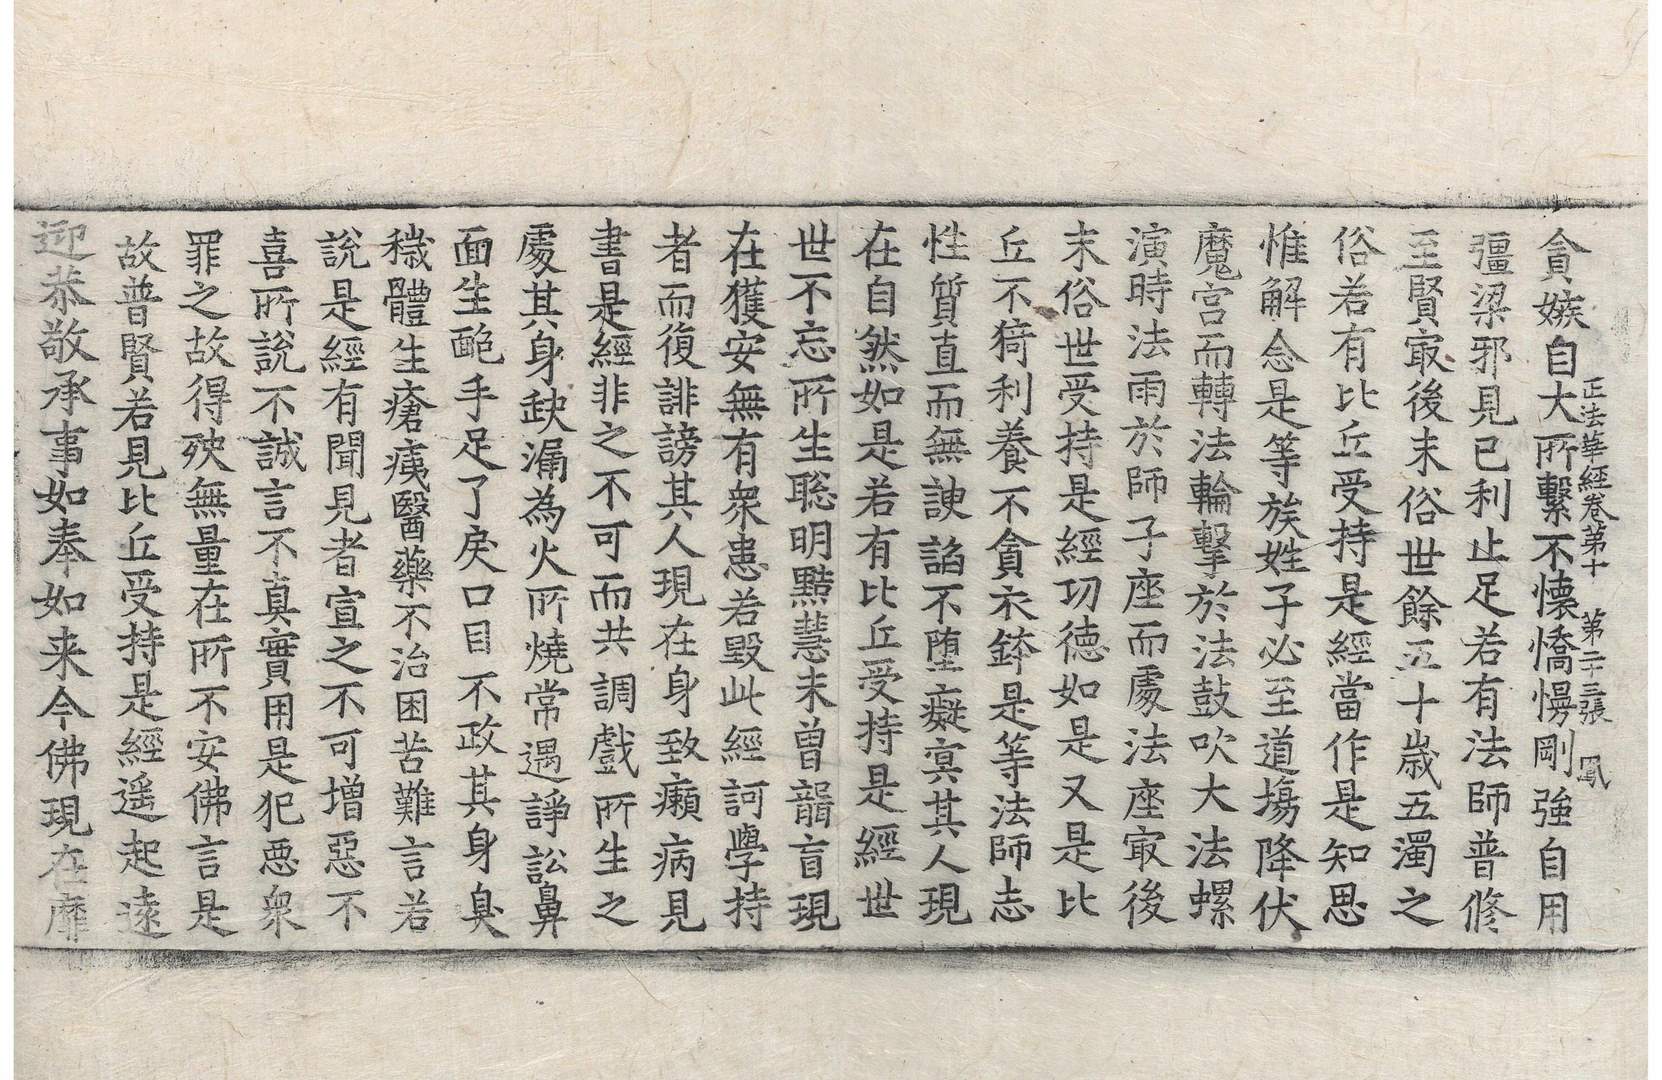 正法華經卷第十 第二十三張 鳳
貪嫉自大所繫不懷憍慢剛強自用
彊梁邪見已利止足若有法師普修
至賢冣後末俗世餘五十歲五濁之
俗若有比丘受持是經當作是知思
惟解念是等族姓子必至道場降伏
魔宮而轉法輪擊於法鼓吹大法螺
演時法雨於師子座而處法座冣後
末俗世受持是經功德如是又是比
丘不猗利養不貪衣鉢是等法師志
性質直而無諛諂不墮癡冥其人現
在自然如是若有比丘受持是經世
世不忘所生聡明黠慧未曾聾盲現
在獲安無有衆患若毀此經訶學持
者而復誹謗其人現在身致癩病見
書是經非之不可而共調戲所生之
處其身缺漏為火所燒常遇諍訟鼻
面生皰手足了戾口目不政其身臭
穢體生瘡痍醫藥不治困苦難言若
說是經有聞見者宣之不可增惡不
喜所說不誠言不真實用是犯惡衆
罪之故得殃無量在所不安佛言是
故普賢若見比丘受持是經遥起遠
迎恭敬承事如奉如来今佛現在靡